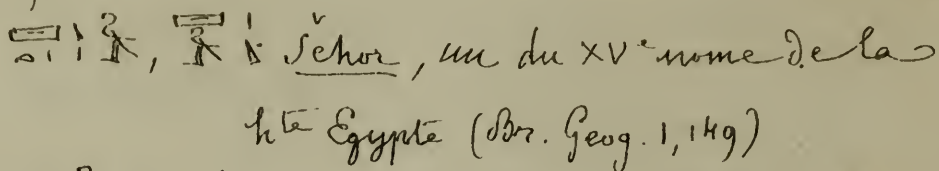 Šehor, un du XVe nome de la
hte Egypte (Br. Geog. 1, 149)